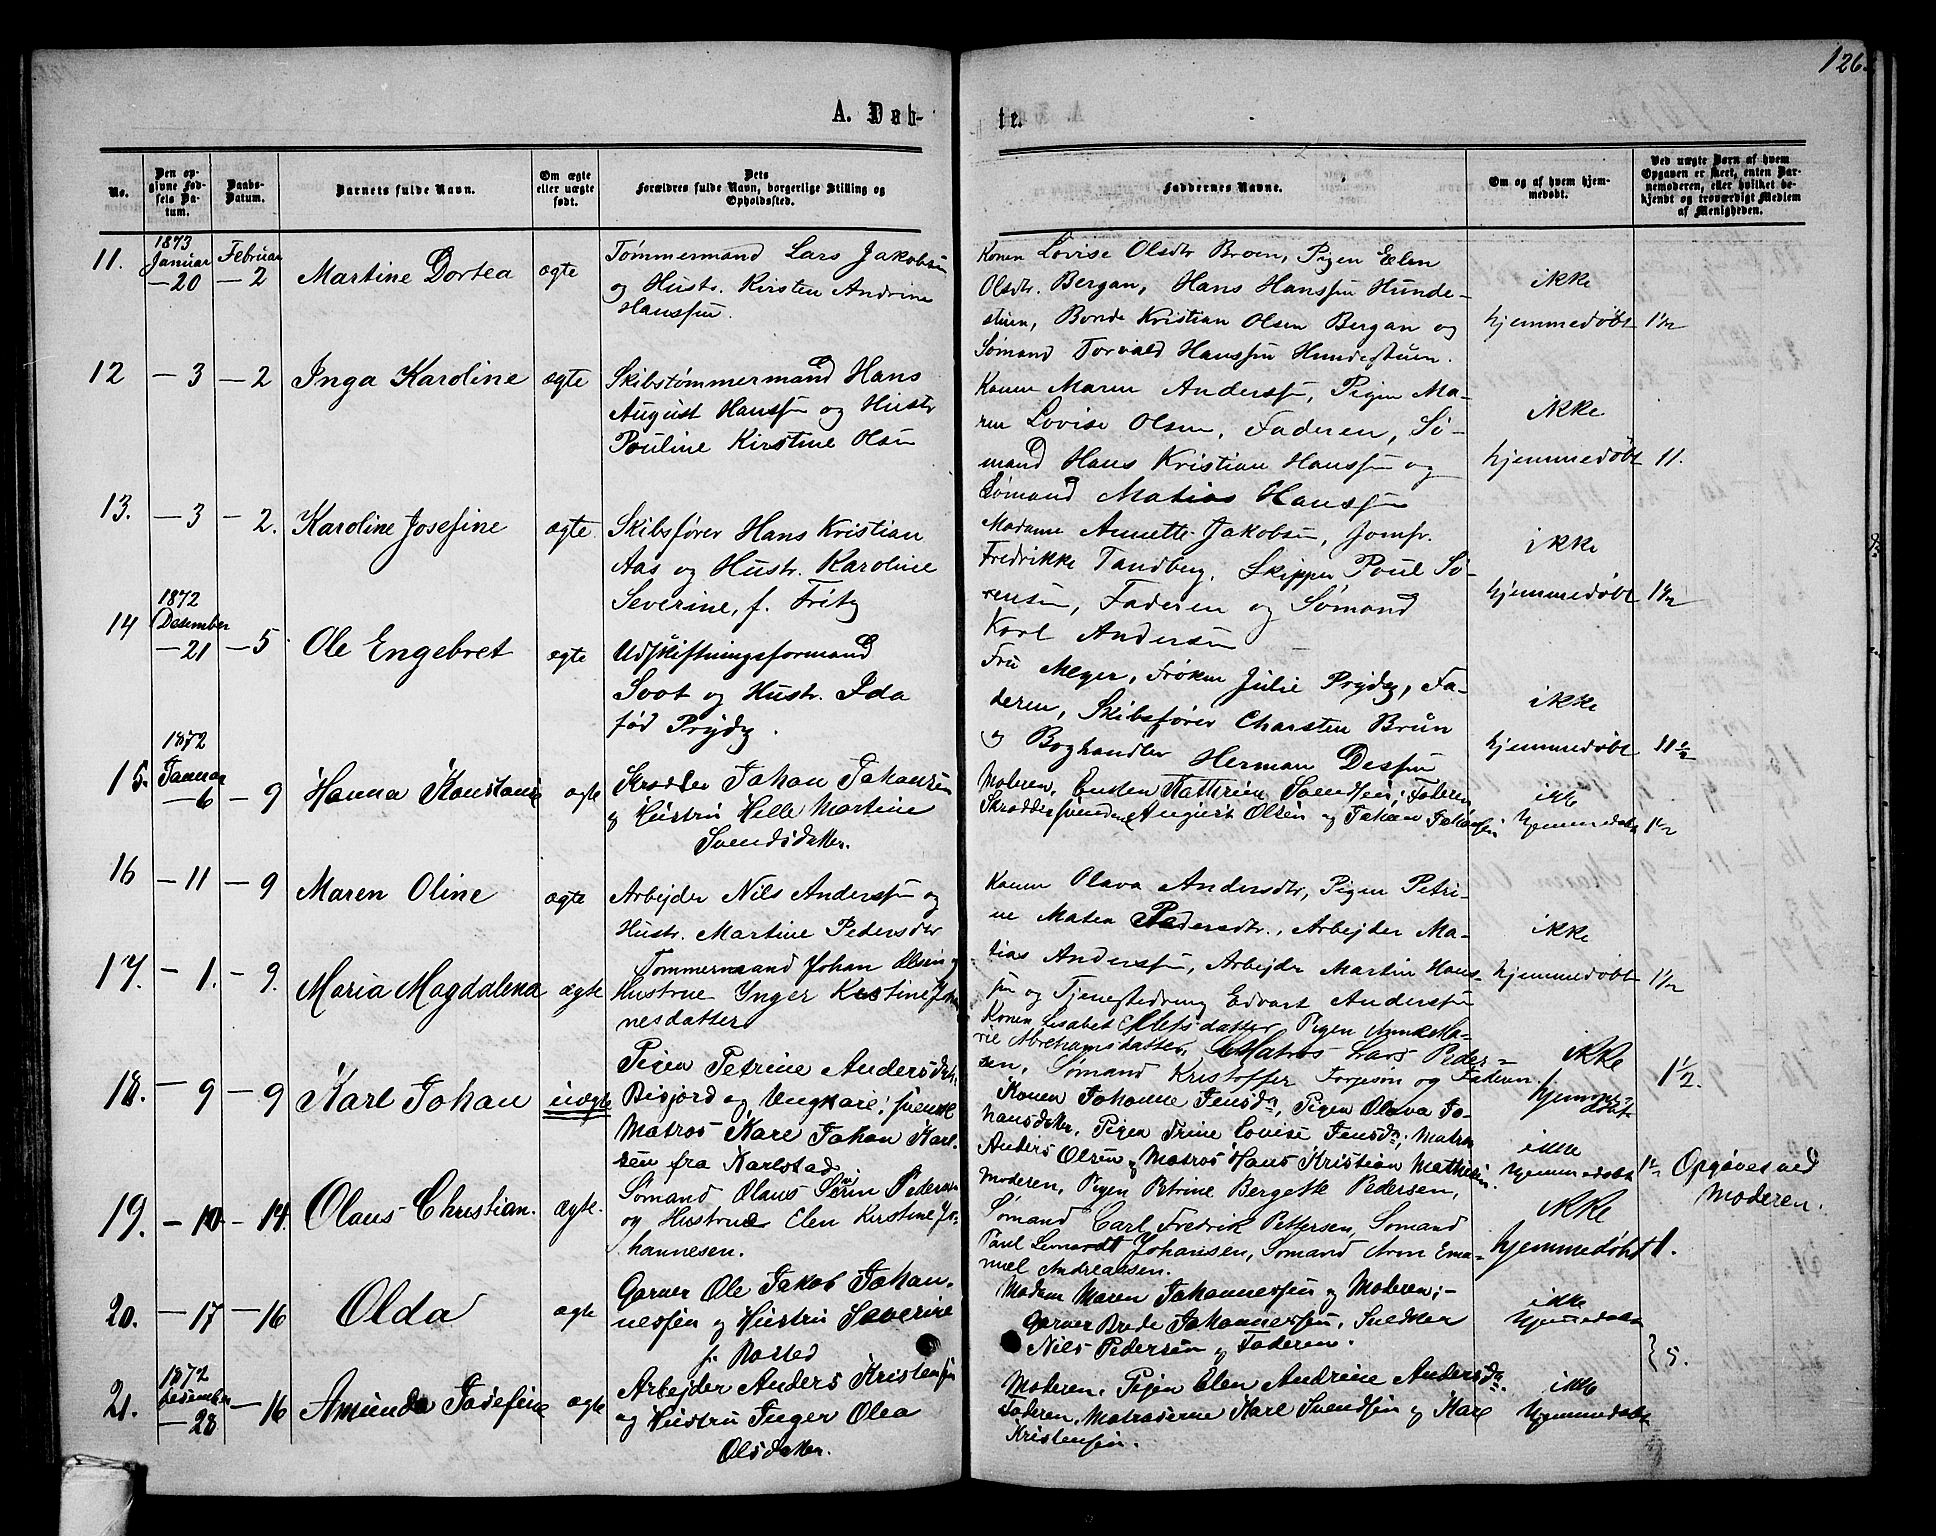 126.
A. Døb-
te.
No.
Den op-
givne Fød-
sels Da-
tum.
Daabs-
Datum.
Barnets fulde Navn.
Om ægte
eller uægte
født.
Dets
Forældres fulde Navn, borgerlige Stilling og
Opholdssted.
Faddernes Navne.
Om og af hvem hjem-
medøbt.
Ved uægte Børn af hvem
Opgaven er skeet, enten Bar-
nemoderen, eller hvilket be-
kjendt og troværdigt Medlem
af Menigheden.
11.
1873
Januar
— 20
Februar
— 2
Martine Dortea
ægte
Tømmermand Lars Jakobsen
og Hustr. Kirsten Andrine
Hanssen.
Konen Lovise Olsdtr Broen, Pigen Elen
Olsdtr. Bergan, Hans Hanssen Hunde-
stuen, Bonde Kristian Olsen Bergan og
Sømand Torvald Hanssen Hundestuen.
ikke
hjemmedøbt
1½
12
— 3
— 2
Inga Karoline
ægte
Skibstømmermand Hans
August Hanssen og Hustr
Pouline Kirstine Olsen
Konen Maren Anderssen, Pigen Ma-
ren Lovise Olsen, Faderen, Sø-
mand Hans Kristian Hanssen og
Sømand Matias Hanssen
ikke
hjemmedøbt
11.
13.
— 3
— 2.
Karoline Josefine
ægte.
Skibsfører Hans Kristian
Aas og Hustr. Karoline
Severine, f. Fritz
Madame Annette Jakobsen, Jomfr.
Fredrikke Tandberg, Skipper Poul Sø-
rensen, Faderen og Sømand
Karl Andersen
ikke
hjemmedøbt
1½
14
1872
Desember
— 21
— 5
Ole Engebret
ægte
Udskiftningsformand
Svot og Hustr. Ida
fød Prydz.
Fru Meyer, Frøken Julie Prydz, Fa-
deren, Skibsfører Charsten Brün
og Boghandler Herman Dessen
ikke
hjemmedøbt
11½
15.
1872
Januar
— 6
— 9
Hanna Konstanse
ægte
Skrædder Johan Johansen
og Hustru Helle Martine
Svendsdatter.
Moderen, Kattrine Svendsen, Faderen,
Skræddersvendene August Olsen og Johan Johansen
ikke
hjemmedøbt
1½
16
— 11
— 9
Maren Oline
ægte
Arbejder Nils Anderssen og
Hustr. Martine Pedersdtr
Konen Olava Andersdtr, Pigen Petri-
ne Matea Pedersdtr., Arbejder Ma-
tias Anderssen, Arbejder Martin Hans-
sen og Tjenestedreng Edvart Anderssen
ikke
hjemmedøbt
1½
17.
— 1.
— 9.
Maria Magdalena
ægte
Tømmermand Johan Olsen og
Hustrue Ynger Kestine Joha
nesdatter
Konen Lisabet Elletsdatter, Pigen Anne Ma-
rie Abrehamsdatter, Matros Lars Peder-
sen, Sømand Kristoffer Torjesøn og Faderen.
ikke
hjemme-
døbt
1½.
18.
— 9
— 9
Karl Johan
uægte
Pigen Petrine Andersdtr.
Bisjord og Ungkarl, svensk
Matros Karl Johan Karl-
sen fra Karlstad
Konen Johanne Jensdr, Pigen Olava Jo-
hansdatter, Pigen Trine Lovise Jensdr, Matros
Anders Olsen og Matros Hans Kristian Mathisen.
ikke
hjemmedøbt
1½
Opgivet ved
Moderen.
19.
— 10
— 14.
Olaus Christian.
ægte.
Sømand Olaus Sørin Pedersen
og Hustrue Elen Kirstine Jo-
hannesen.
Moderen, Pigen Petrine Bergette Pedersen,
Sømand Carl Fredrik Pettersen, Sømand
Paul Leonardt Johansen, Sømand Aron Ema-
nuel Andreassen.
ikke
hjemmedøbt
1.
20.
— 17
— 16
Olda
ægte
Garver Ole Jakob Johan-
nessen og Hustru Severine
f. Rosted
Madam Maren Johannessen og Moderen; -
Garver Brede Johannessen, Snedker
Nils Pedersen og Faderen.
ikke
hjemmedøbt
} 5.
21.
1872
Desember
— 28
— 16
Amunda Josefine
ægte
Arbejder Anders Kristensen
og Hustru Inger Olea
Olsdatter.
Moderen, Pigen Elen Andrine Andersdr,
Faderen, Matroserne Karl Svendsen og Karl
Kristensen.
ikke
hjemmedøbt